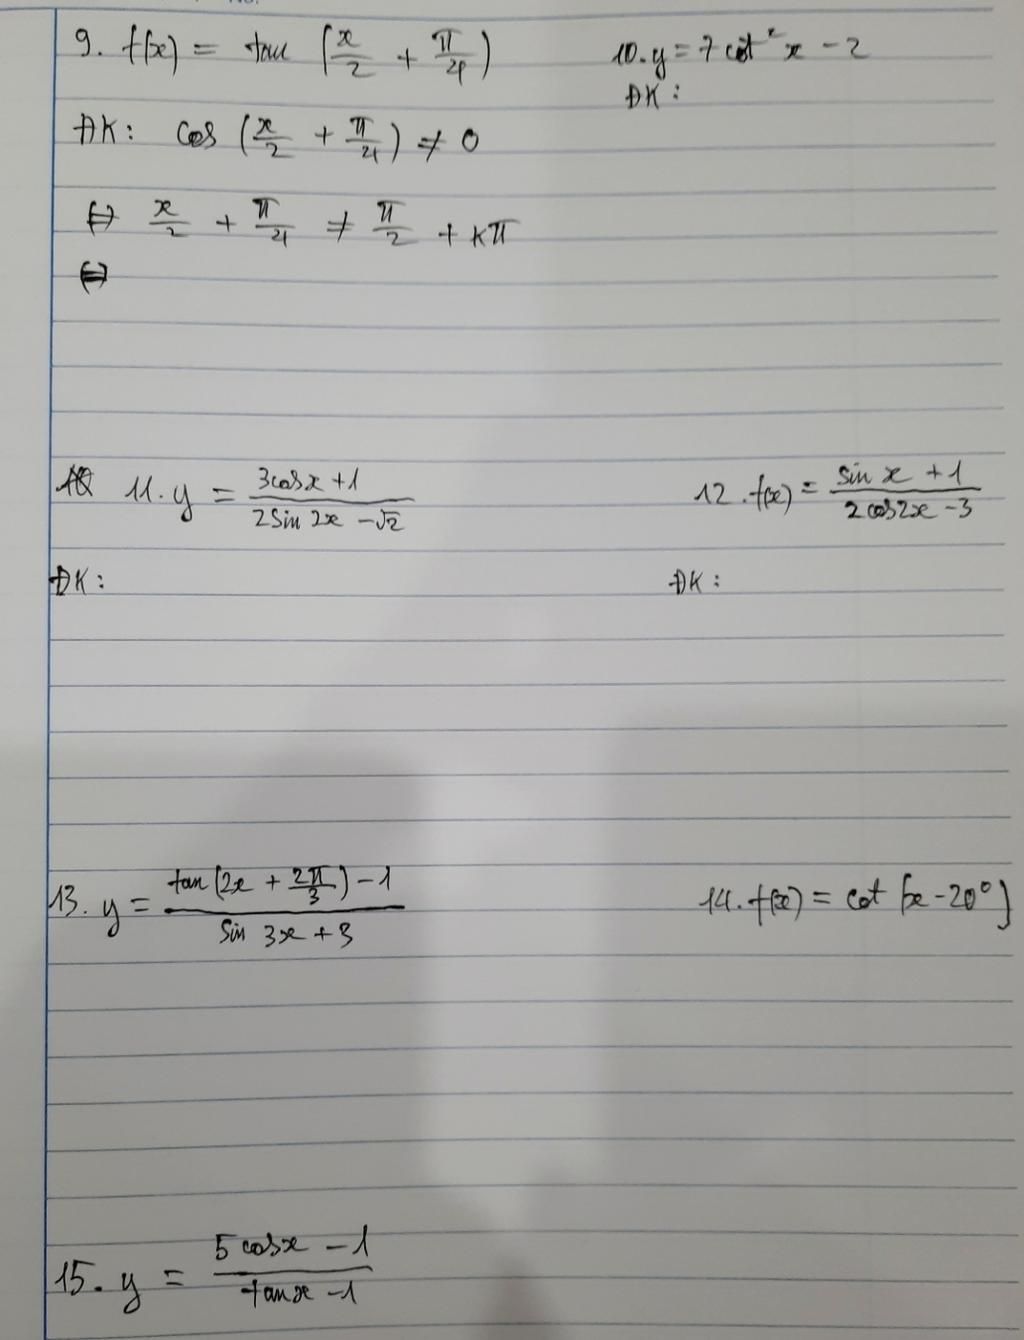 9. f(x) = tan (x/2 + π/4)
10. y = 7 cot² x - 2
ĐK:
ĐK: cos (x/2 + π/4) ≠ 0
⇔ x/2 + π/4 ≠ π/2 + kπ
⇔
11. y = (3cosx + 1)/(2 sin 2x - √2)
12. f(x) = (sin x + 1)/(2 cos2x - 3)
ĐK:
ĐK:
13. y = (tan (2x + 2π/3) - 1)/(sin 3x + 3)
14. f(x) = cot (x - 20°)
15. y = (5 cosx - 1)/(tanx - 1)